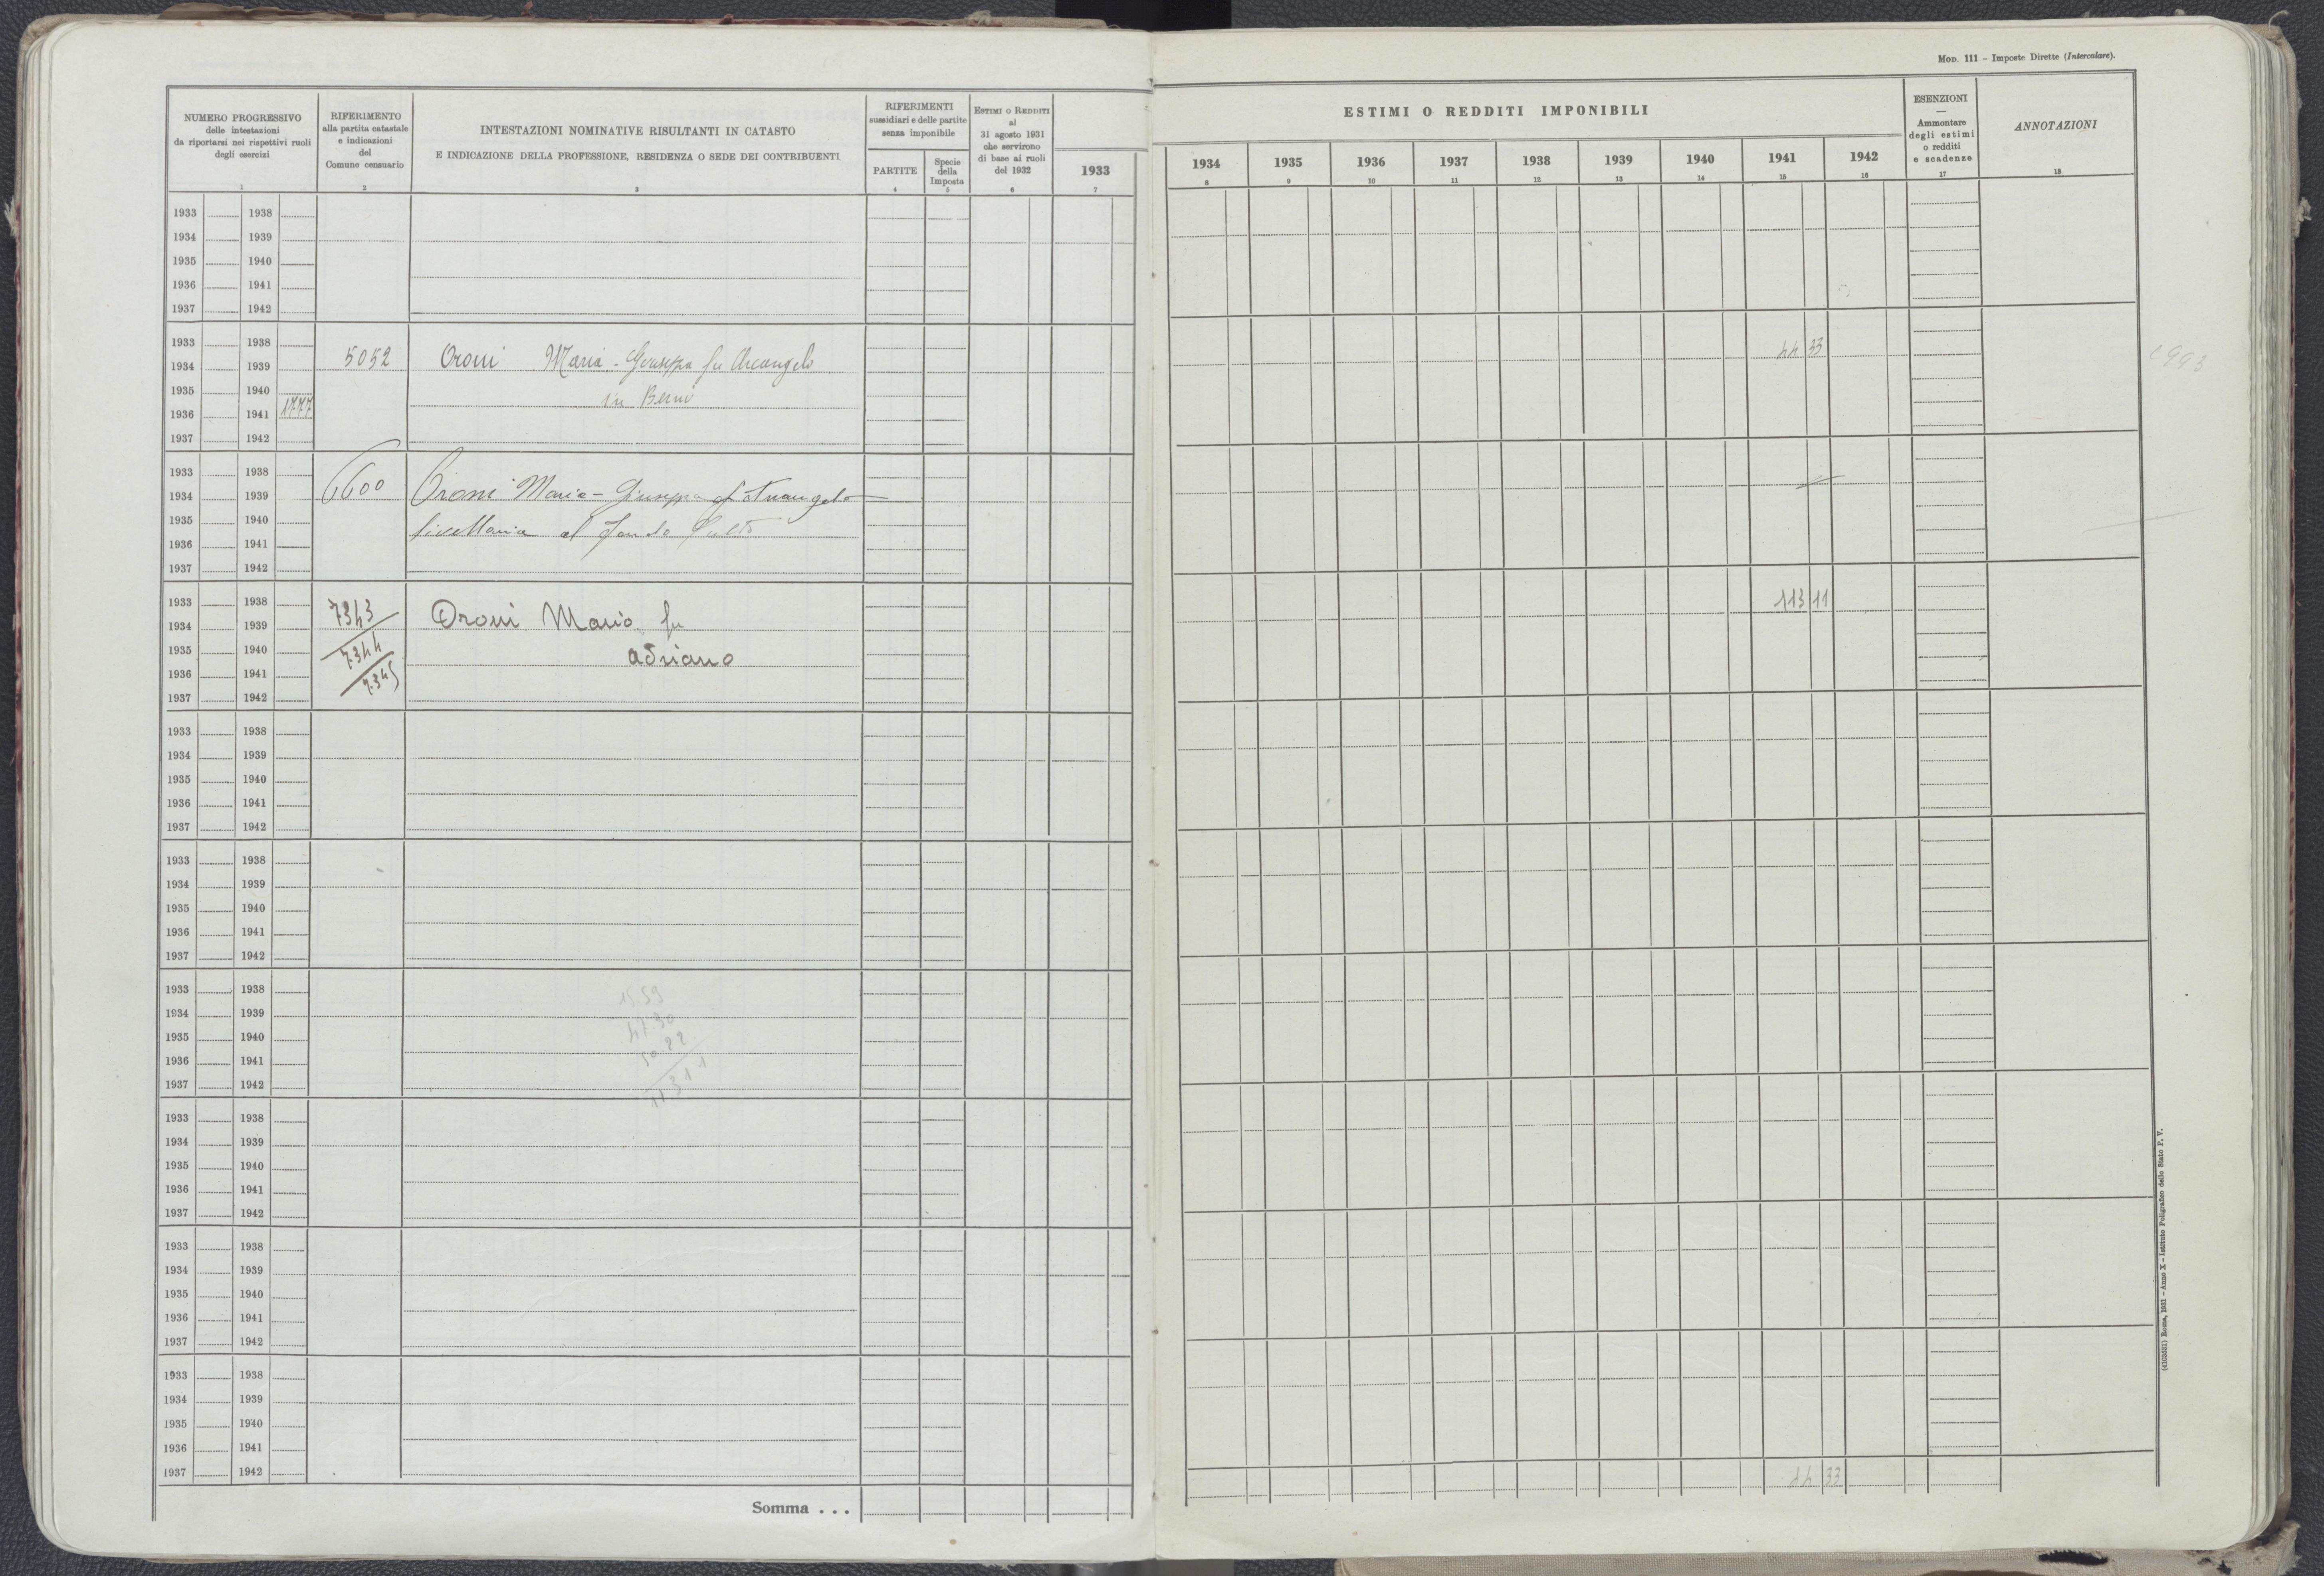 Mod. 111 – Imposte Dirette (Intercalare).
NUMERO PROGRESSIVO
delle intestazioni
da riportarsi nei rispettivi ruoli
degli esercizi
1
RIFERIMENTO
alla partita catastale
e indicazioni
del
Comune censuario
2
INTESTAZIONI NOMINATIVE RISULTANTI IN CATASTO
E INDICAZIONE DELLA PROFESSIONE, RESIDENZA O SEDE DEI CONTRIBUENTI
3
RIFERIMENTI
sussidiari e delle partite
senza imponibile
PARTITE
4
Specie
della
Imposta
5
Estimi o Redditi
al
31 agosto 1931
che servirono
di base ai ruoli
del 1932
6
1933
7
ESTIMI O REDDITI IMPONIBILI
1934 1935 1936 1937 1938 1939 1940 1941 1942
8 9 10 11 12 13 14 15 16
ESENZIONI
—
Ammontare
degli estimi
o redditi
e scadenze
17
ANNOTAZIONI
18
1933 1938
1934 1939
1935 1940
1936 1941
1937 1942
1933 1938
1934 1939 5052 Oroni Maria - Giuseppa fu Arcangelo 44 33
1935 1940 in Berni
1936 1941 1777
1937 1942
1933 1938
1934 1939 6600 Oroni Maria - Giuseppa f Arcangelo
1935 1940 livellaria al Fondo Culto
1936 1941
1937 1942
1933 1938 7343 113 11
1934 1939 Oroni Mario fu
1935 1940 7344 Adriano
1936 1941 7345
1937 1942
1933 1938
1934 1939
1935 1940
1936 1941
1937 1942
1933 1938
1934 1939
1935 1940
1936 1941
1937 1942
1933 1938 15.59
1934 1939 47 30
1935 1940 50 22
1936 1941
1937 1942 113 11
1933 1938
1934 1939
1935 1940
1936 1941
1937 1942
1933 1938
1934 1939
1935 1940
1936 1941
1937 1942
1933 1938
1934 1939
1935 1940
1936 1941
1937 1942 44 33
Somma . . .
(4103531) Roma, 1931 – Anno X – Istituto Poligrafico dello Stato P. V.